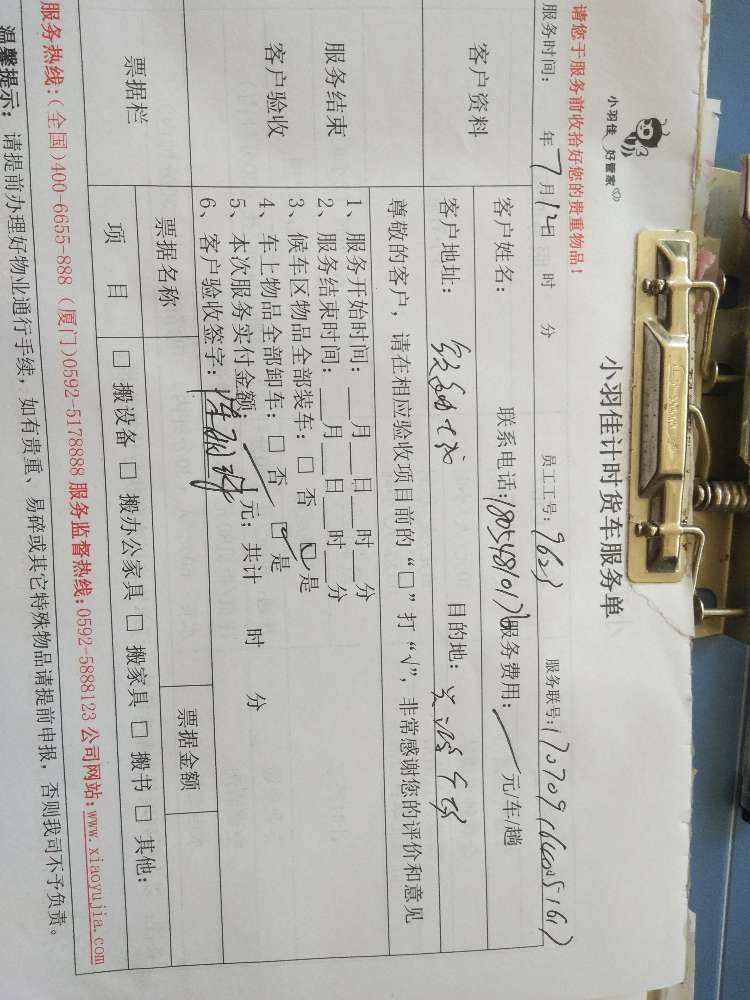 小羽佳 好管家
小羽佳计时货车服务单
请您于服务前收拾好您的贵重物品!
服务时间: 年 7 月 12 日 时 分 员工工号: 9623 服务联号:
客户资料
客户姓名: 联系电话: 服务费用: 元/车/趟
客户地址: 目的地:
服务结束
客户验收
尊敬的客户,请在相应验收项目前的“□”打“√”,非常感谢您的评价和意见
1、服务开始时间:__月__日__时__分
2、服务结束时间:__月__日__时__分
3、候车区物品全部装车:□ 否 □ 是
4、车上物品全部卸车:□ 否 □ 是
5、本次服务实付金额: 元;共计 时 分
6、客户验收签字:
票据栏
票据名称 票据金额
项 目 □ 搬设备 □ 搬办公家具 □ 搬家具 □ 搬书 □ 其他:
服务热线:(全国)400-6655-888 (厦门)0592-5178888 服务监督热线:0592-5888123 公司网站:www.xiaoyujia.com
温馨提示: 请提前办理好物业通行手续,如有贵重、易碎或其它特殊物品请提前申报,否则我司不予负责。